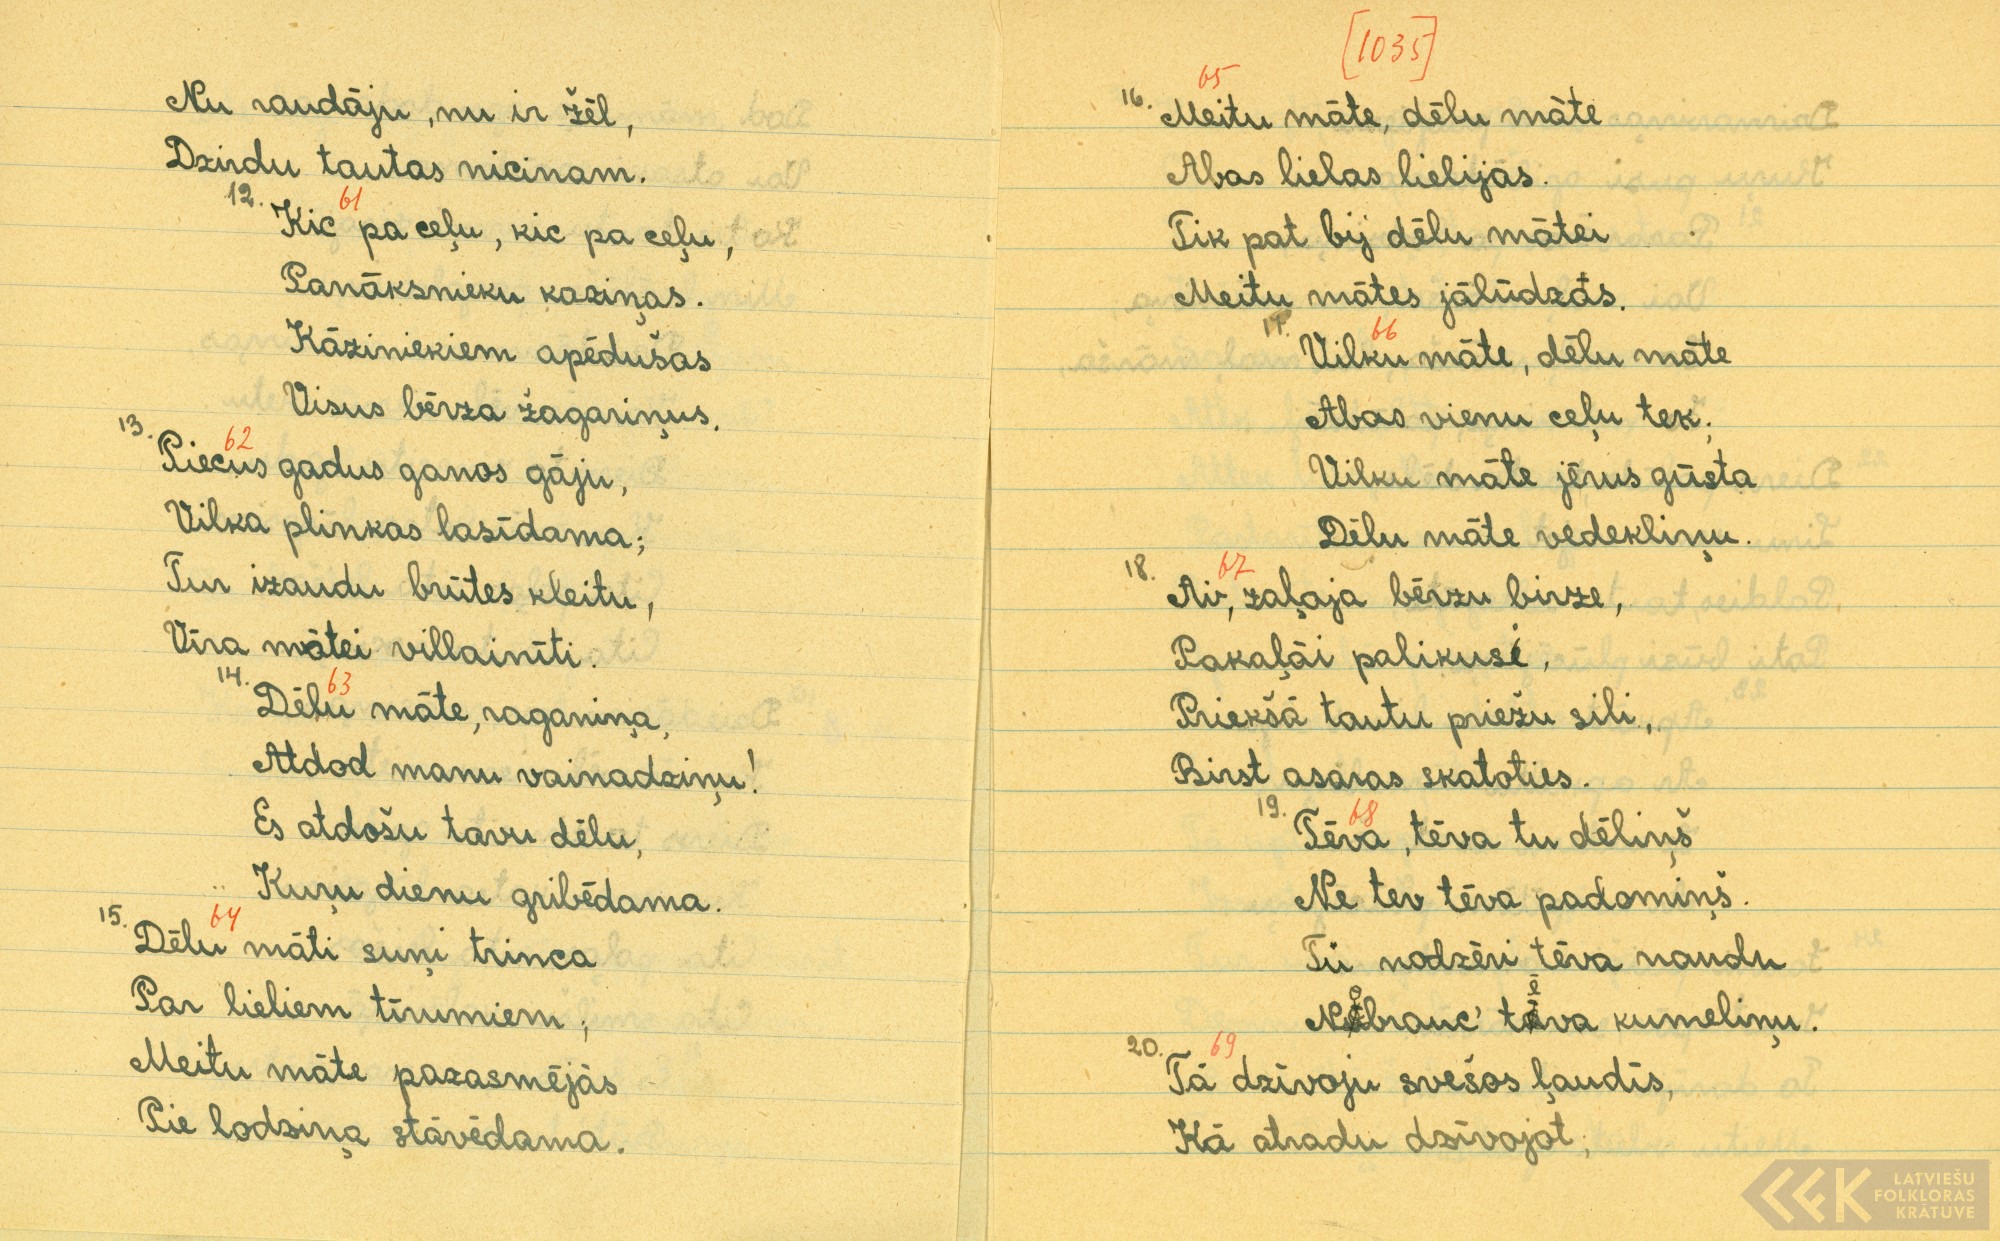 Nu raudāju, nu ir žēl,
Dzirdu tautas nicinam.
12. 61
Kic pa ceļu, kic pa ceļu,
Panāksnieku kaziņas.
Kāziniekiem apēdušas
Visus bērza žagariņus.
13. 62
Piecus gadus ganos gāju,
Vilka plinkas lasīdama;
Tur izaudu brūtes kleitu,
Vīra mātei villainīti.
14. 63
Dēlu māte, raganiņa,
Atdod manu vainadziņu!
Es atdošu tavu dēlu,
Kuŗu dienu gribēdama.
15. 64
Dēlu māti suņi trinca
Par lieliem tīrumiem;
Meitu māte pazasmējās
Pie lodziņa stāvēdama.
[1035]
16. 65
Meitu māte, dēlu māte
Abas lielas lielijās.
Tik pat bij dēlu mātei
Meitu mātes jālūdzās.
17. 66
Vilku māte, dēlu māte
Abas vienu ceļu tek;
Vilku māte jērus gūsta
Dēlu māte vedekliņu.
18. 67
Ai, zaļaja bērzu birze,
Pakaļāi palikusi,
Priekšā tautu priežu sili,
Birst asaras skatoties.
19. 68
Tēva, tēva tu dēliņš
Ne tev tēva padomiņš.
Tu nodzēri tēva naudu
Nobrauc' tēva kumeliņu.
20. 69
Tā dzīvoju svešos ļaudīs,
Kā atradu dzīvojot;
LATVIEŠU
FOLKLORAS
KRĀTUVE